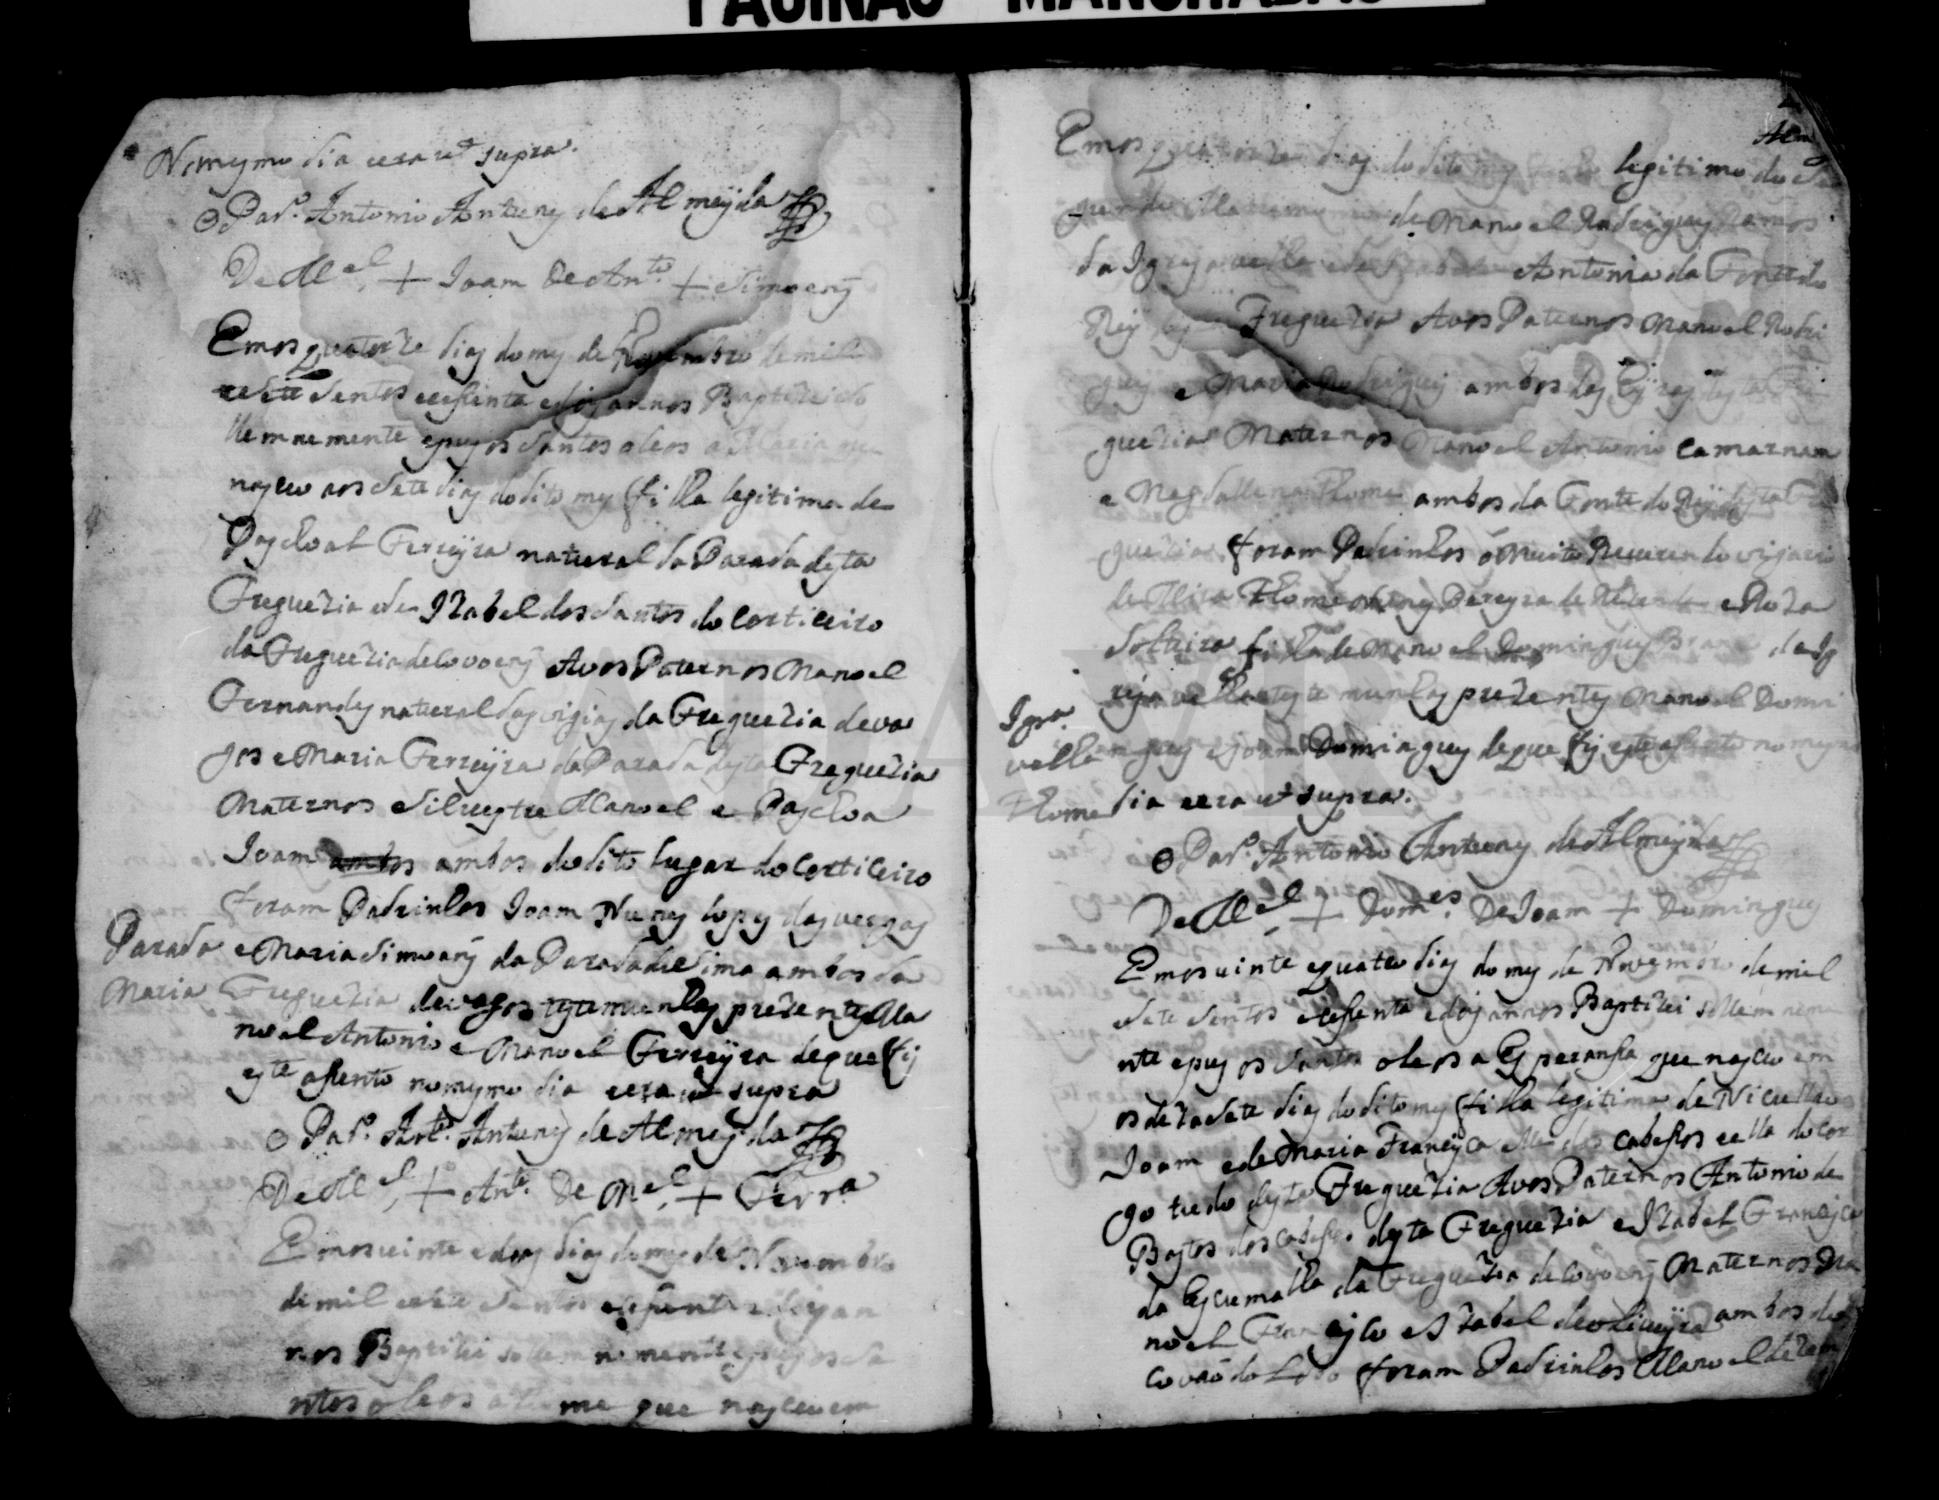 PAGINAS MANCHADAS
No mesmo dia eera ut supra.
O Par.º Antonio Antunes de Almeyda
De M.el + Joam De Ant.to + Simoens
Em os quatorze dias do mes de Novembro de mil
esete sentos esesenta edois annos Baptizei so
llemnemente epus os santos oleos a Maria que
nasceo aos sete dias do dito mes filha legitima de
Paschoal Ferreyra natural da Parada desta
Freguezia ede Izabel dos Santos do Corticeiro
da Freguezia de Covoens Avos Paternos Manoel
Fernandes natural das vigias da Freguezia de va
gos e Maria Ferreyra da Parada desta Freguezia
Maternos Silvestre Manoel e Paschoa
Joam ambos ambos do dito lugar do Corticeiro
foram Padrinhos Joam Nunes lopes das vergas
e Maria Simoens da Parada de Sima ambos da
Parada
Maria
Freguezia de vagos testemunhas prezentes Ma
noel Antonio e Manoel Ferreyra de que fis
este asento no mesmo dia eera ut supra
O Par.º Ant.º Antunes de Almeyda
De M.el + Ant.º De M.el + Ferr.a
Em os vinte e dois dias do mes de Novembro
de mil esete sentos esesenta e dois an
nos Baptizei sollemnemente epus os sa
ntos oleos a Thome que nasceo em
Alm
Em os quatorze dias do dito mes filho legitimo do
de Manoel Rodrigues Ramos
da Igreja velha ede Antonia da Fonte do
Rey desta Freguezia Avos Paternos Manoel Rodri
gues e Maria Rodrigues ambos das desta Fre
guezia Maternos Manoel Antonio Camarnam
e Magdallena Thome ambos da Fonte do Rey desta Fre
guezia foram Padrinhos o Muito Reverendo vigario
de Mira Thome Nunes Pereyra de Rezende e Roza
Solteira filha de Manoel Domingues da Ig
reja velha testemunhas prezentes Manoel Domi
Igra
velha
Thome
ngues e Joam Domingues de que fis este asento no mesmo
dia eera ut supra.
O Par.º Antonio Antunes de Almeyda
De M.el + Dom.es De Joam + Domingues
Em os vinte equatro dias do mes de Novembro de mil
esete sentos esesenta edois annos Baptizei sollemneme
nte epus os santos oleos a Esperansa que nasceo em
os dezasete dias do dito mes filha legitima de Nicullao
Joam ede Maria Francisca elle dos cabesos eella do Cor
go tudo desta Freguezia Avos Paternos Antonio de
Bastos dos cabesos desta Freguezia e Izabel Francisca
da Escumalha da Freguezia de Covoens Maternos Ma
noel Francisco e Izabel de oliveyra ambos do
Covão do Lobo foram Padrinhos Manoel de